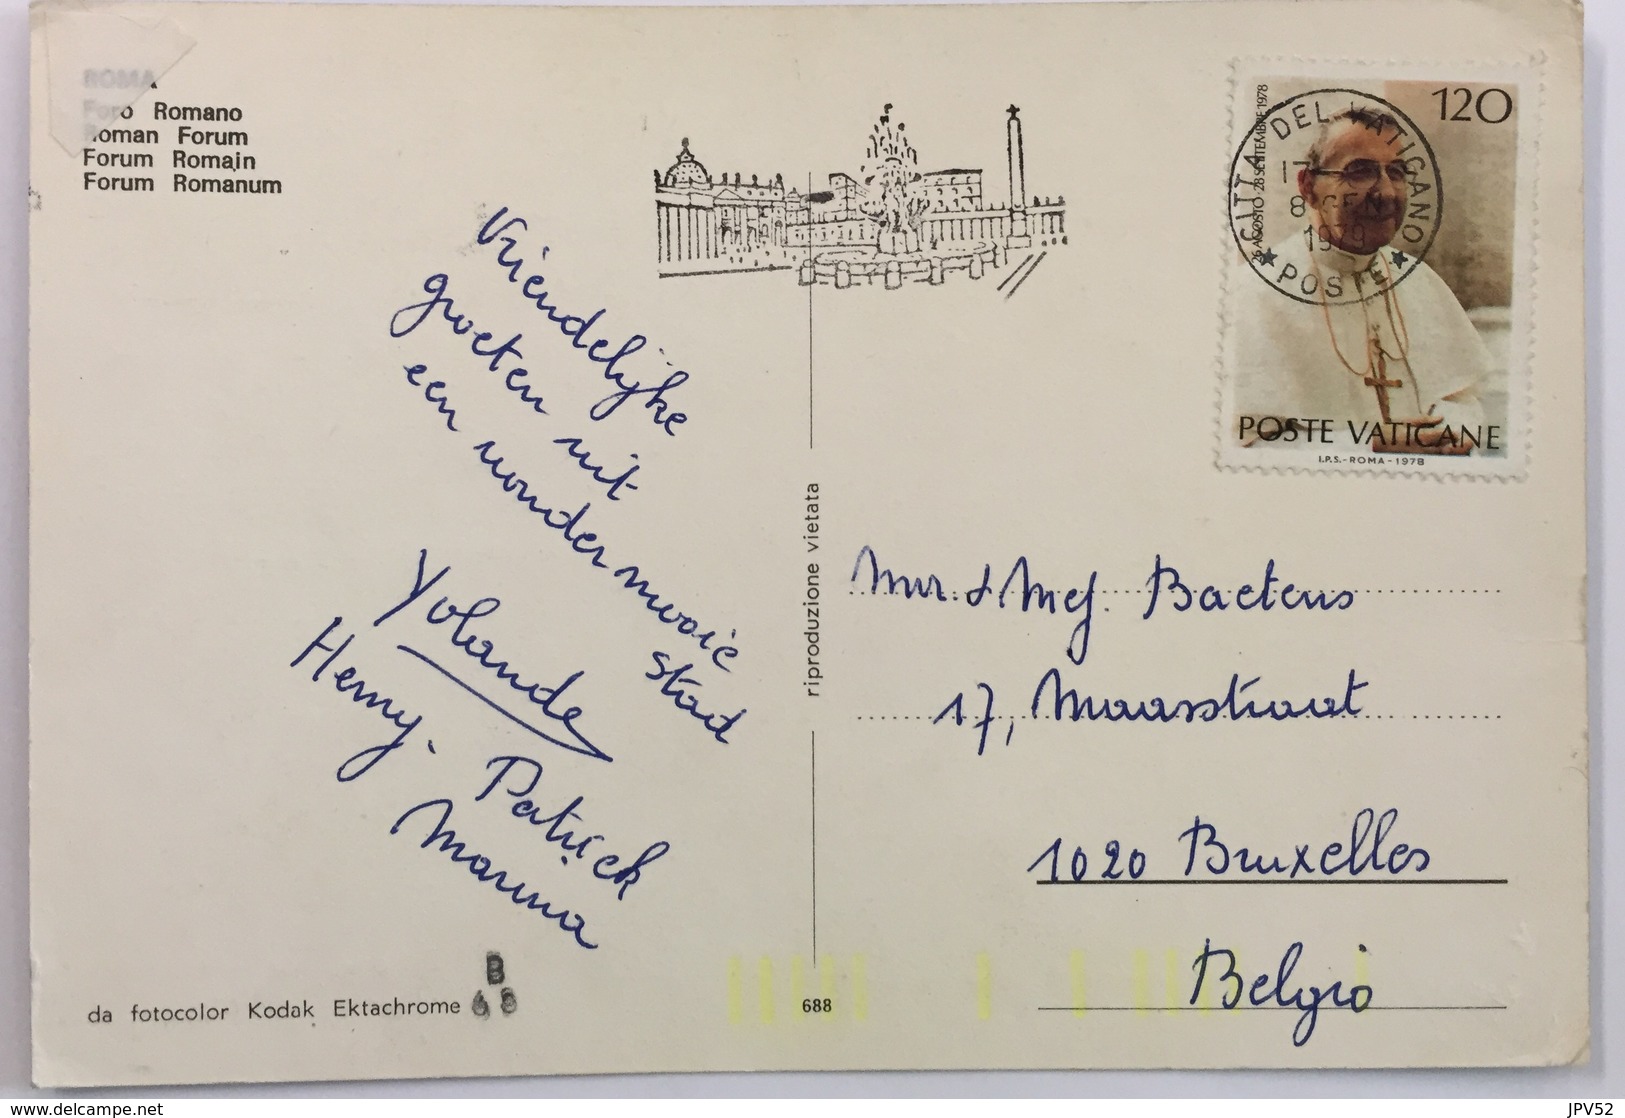 ROMA
Foro Romano
Roman Forum
Forum Romain
Forum Romanum
Vriendelijke
groeten uit
een wondermooie
stad
Yolande
Henry. Patrick
Marina
da fotocolor Kodak Ektachrome
B
688
riproduzione vietata
120
26 AGOSTO - 28 SETTEMBRE 1978
CITTA DEL VATICANO
17
8 GEN
1979
POSTE
POSTE VATICANE
I.P.S. - ROMA - 1978
Mr. & Mej. Baetens
17, Maasstraat
1020 Bruxelles
Belgio
delcampe.net
JPV52